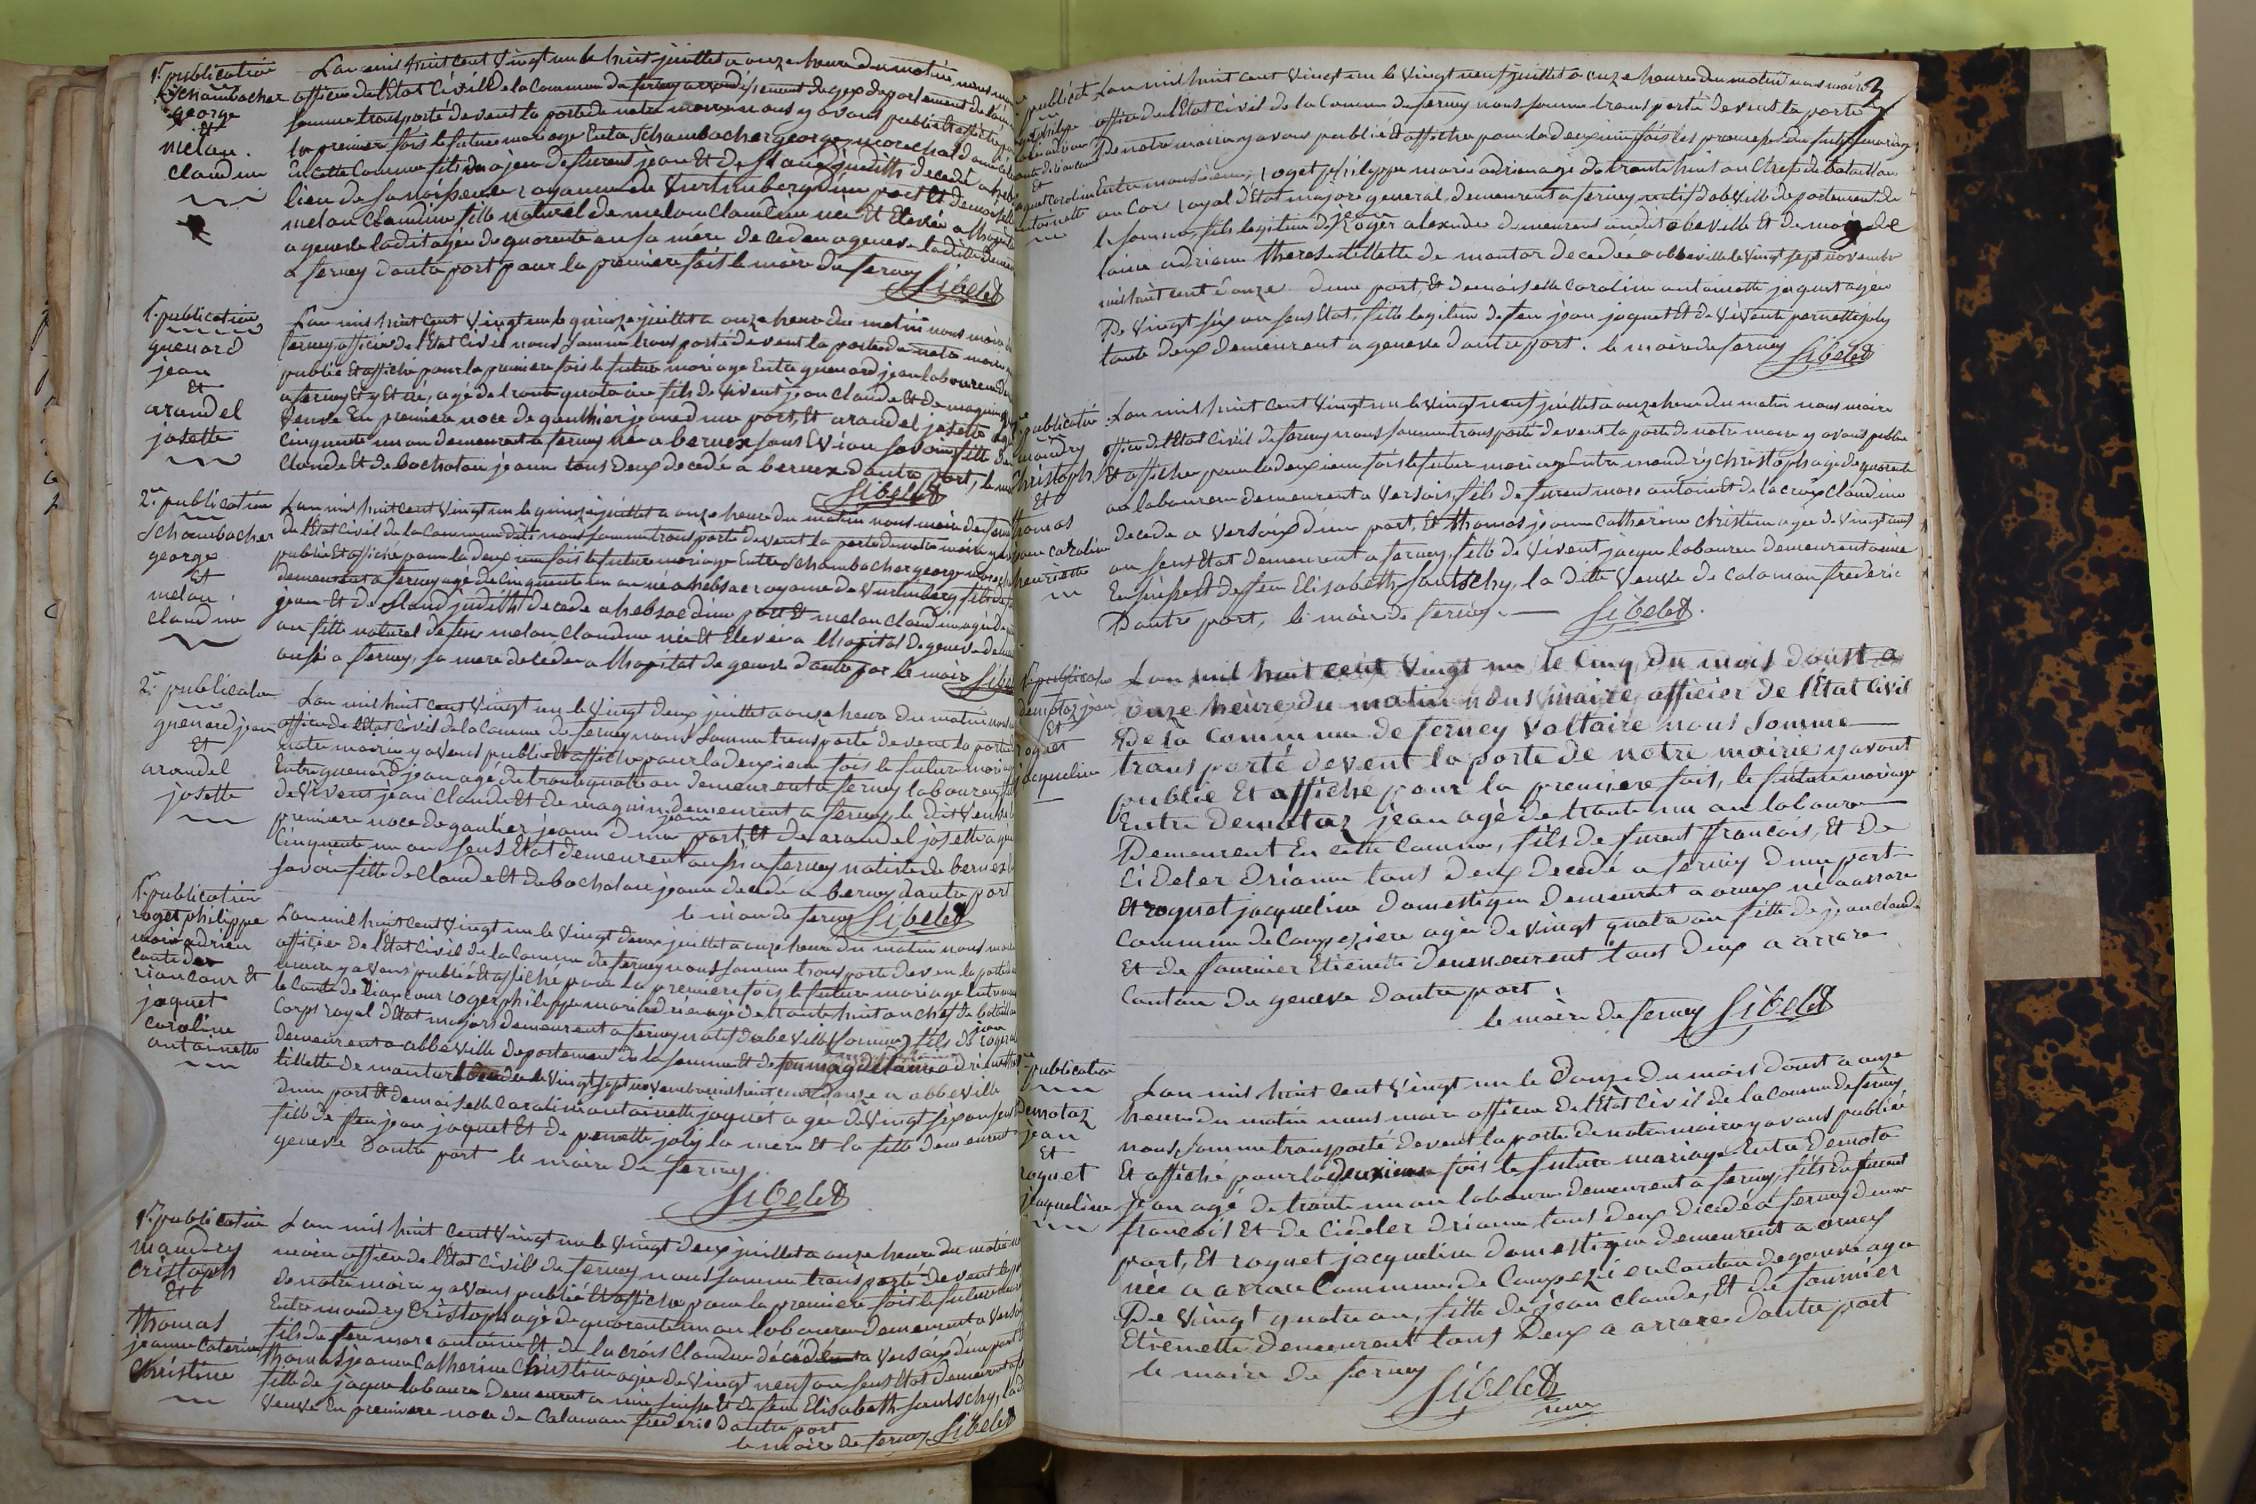 1.re publication
Schambacher
george
Et
melan.
claudine
L'an mil huit cent vingt un le huit juillet a onze heure du matin nous
officier de l'Etat Civil de la Commune de ferney arrondisement de gex departement de
somme transporté devent la porte de notre mairie nous y avons publié et affiché
la premiere fois le future mariage Entre Schambacher george marechal
En cette Commune fils majeur de furent jean Et de judith decedé a
lieu de royaume de Vurtemberg d'une part Et demoiselle
melan Claudine fille naturel de melan Claudine née Et Elevée a
a geneve laditte agée de quarente an sa mére decedée a geneve laditte
a ferney d'autre part pour la premiere fois le maire de ferney
Sibelet
1.re publication
guenard
jean
et
arandel
josette
L'an mil huit cent vingt un le quinze juillet a onze heure du matin nous maire
ferney officier de l'Etat Civil nous somme transporté devent la porte de notre
publié Et affiché pour la premiere fois le future mariage Entre guenard jean laboureur
a ferney Et y Et né, agé de trente quatre an fils de vivent jean claude Et de magnin
Veuve En premiere noce de gauthier jeanne d'une part, Et arandel josette
cinquente un an demeurent a ferney née a bernex sous Evian savoie fille de
Claude Et de bochaton jeanne tous deux decedé a bernex d'autre part, le
Sibelet
2.e publication
Schambacher
george
et
melan.
claudine
L'an mil huit cent vingt un le quinze juillet a onze heure du matin nous maire de
de l'Etat Civil de la Commune nous somme transporté devent la porte de notre mairie
publié Et affiché pour la deuxieme fois le future mariage Entre Schambacher george
demeurent a ferney agé de cinquente un an né a royaume de Vurtemberg fils
jean Et de judith decedé a d'une part Et melan claudine agée
an fille naturel de feu melan Claudine née Et Elevée a l'hopital de geneve
aussi a ferney, sa mere decedée a l'hopital de geneve d'autre part le maire
2.e publication
guenard jean
Et
arandel
josette
L'an mil huit cent vingt un le vingt deux juillet a onze heure du matin
officier de l'Etat Civil de la Commune de ferney nous somme transporté devent la porte
notre mairie y avons publié Et affiché pour la deuxieme fois le future
Entre guenard jean agé de trente quatre an demeurent a ferney laboureur
de vivent jean claude Et de magnin jeanne demeurent a ferney, le dit Veuve
premiere noce de gautier jeanne d'une part, Et de arandel josette agée
Cinquente un an sens Etat demeurent aussi a ferney native de bernex
savoie fille de Claude Et de bochaton jeanne decedé a bernex d'autre part
le maire de ferney Sibelet
1.re publication
roget philippe
marie adrien
conte de
riancour Et
jaquet
caroline
antoinette
L'an mil huit cent vingt un le vingt deux juillet a onze heure du matin nous
officier de l'Etat Civil de la Commune de ferney nous somme transporté devent la porte
mairie y avons publié Et affiché pour la premiere fois le future mariage Entre
le Conte de riancour roger philippe marie adrien agé de trente huit an chef de bataillon
Corps royal d'Etat major demeurent a ferney natif d'abeville somme fils de jean roger
demeurent a abbeville departement de la somme Et de
tillette de mautor decedée le vingt sept novembre mil huit cent onze a abbeville
d'une part Et demoiselle caroline antoinette jaquet agée de vingt six an sens
fille de feu jean jaquet Et de pernette joly la mere Et la fille demeurent
geneve d'autre part le maire de ferney
Sibelet
1.re publication
mandry
cristoph
Et
thomas
jeanne caterine
christine
L'an mil huit cent vingt un le vingt deux juillet a onze heure du matin
maire officier de l'Etat Civil de ferney nous somme transporté devent
de notre mairie y avons publié Et affiché pour la premiere fois le future
Entre mandry Cristoph agé de quarente un an laboureur demeurent a
fils de feu marc antoine Et de la crois Claudine decedé a versoix d'une part
thomas jeanne Catherine Christine agée de vingt neuf an sens Etat demeurent
fille de jaque laboureur demeurent a Et de feue Elisabeth
veuve En premiere noce de Calaman frederic d'autre part
le maire de ferney Sibelet
3
L'an mil huit cent vingt un le vingt neuf juillet a onze heure du matin nous maire
officier de l'Etat Civil de la Commune de ferney nous somme transporté devent la porte
de notre mairie y avons publié Et affiché pour la deuxieme fois les promesse de future mariage
Entre monsieur, roget philippe marie adrien agé de trente huit an Chef de bataillon
au Cor royal d'Etat major general, demeurent a ferney natif d'abbeville departement de
la somme fils legitime de jean roger alexandre demeurent audit abbeville Et de
adrienne therese tillette de mautor decedée a abbeville le vingt sept novembre
mil huit cent onze d'une part, Et demoiselle Caroline antoinette jaquet agée
De vingt six an sens Etat, fille legitime de feu jean jaquet Et de vivente pernette joly
toute deux demeurent a geneve d'autre part. le maire de ferney Sibelet
publication
mandry
Christoph
Et
thomas
L'an mil huit cent vingt un le vingt neuf juillet a onze heure du matin nous maire
officier de l'Etat Civil de ferney nous somme transporté devent la porte de notre mairie y avons publié
Et affiché pour la deuxieme fois le future mariage Entre mandry christoph agé de quarente
an laboureur demeurent a versoix, fils de furent marc antoine Et de la croix Claudine
decedé a versoix d'une part, Et thomas jeanne Catherine christine agée de vingt neuf
an sens Etat demeurent a ferney, fille de vivent jaque laboureur demeurent
Et de feue Elisabeth, la ditte veuve de calaman frederic
D'autre part, le maire de ferney. — Sibelet.
1.re publication
demotaz jean
Et
roquet
jacqueline
L'an mil huit cent vingt un le cinq du mois d'oust a
onze heure du matin nous maire, officier de l'Etat Civil
De la Commune de ferney Voltaire nous somme
transporté devent la porte de notre mairie y avont
publié Et affiché pour la premiere fois, le future mariage
Entre demotaz jean agé de trente un an laboureur
Demeurent En cette Commune, fils de furent françois, Et de
Cideler driame tous deux decedé a ferney d'une part
Et roquet jacqueline domestique demeurent a ornex né a arrare
Commune de Compeziere agée de vingt quatre an fille de jean claude
Et de fournier Etienette demeurent tous deux a arrare
Canton de geneve d'autre part.
le maire de ferney Sibelet
publication
Demotaz
jean
Et
roquet
jaqueline
L'an mil huit cent vingt un le Douze du mois d'oust a onze
heure du matin nous maire officier de l'Etat Civil de la Commune de ferney
nous somme transporté devent la porte de notre mairie y avons publié
Et affiché pour la deuxieme fois le future mariage Entre Demota
jean agé de trente un an laboureur demeurent a ferney, fils de furent
françois Et de Cideler driame tous deux decedé a ferney d'une
part, Et roquet jacqueline domestique demeurent a ornex
née a arrare Commune de Compeziere Canton de geneve agée
De vingt quatre an, fille de jean claude, Et de fournier
Etienette demeurent tous deux a arrare d'autre part
le maire de ferney
Sibelet